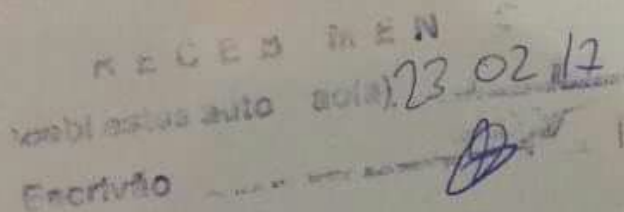 RECEBIMEN
estes auto aos(s) 23 02 17
Escrivão